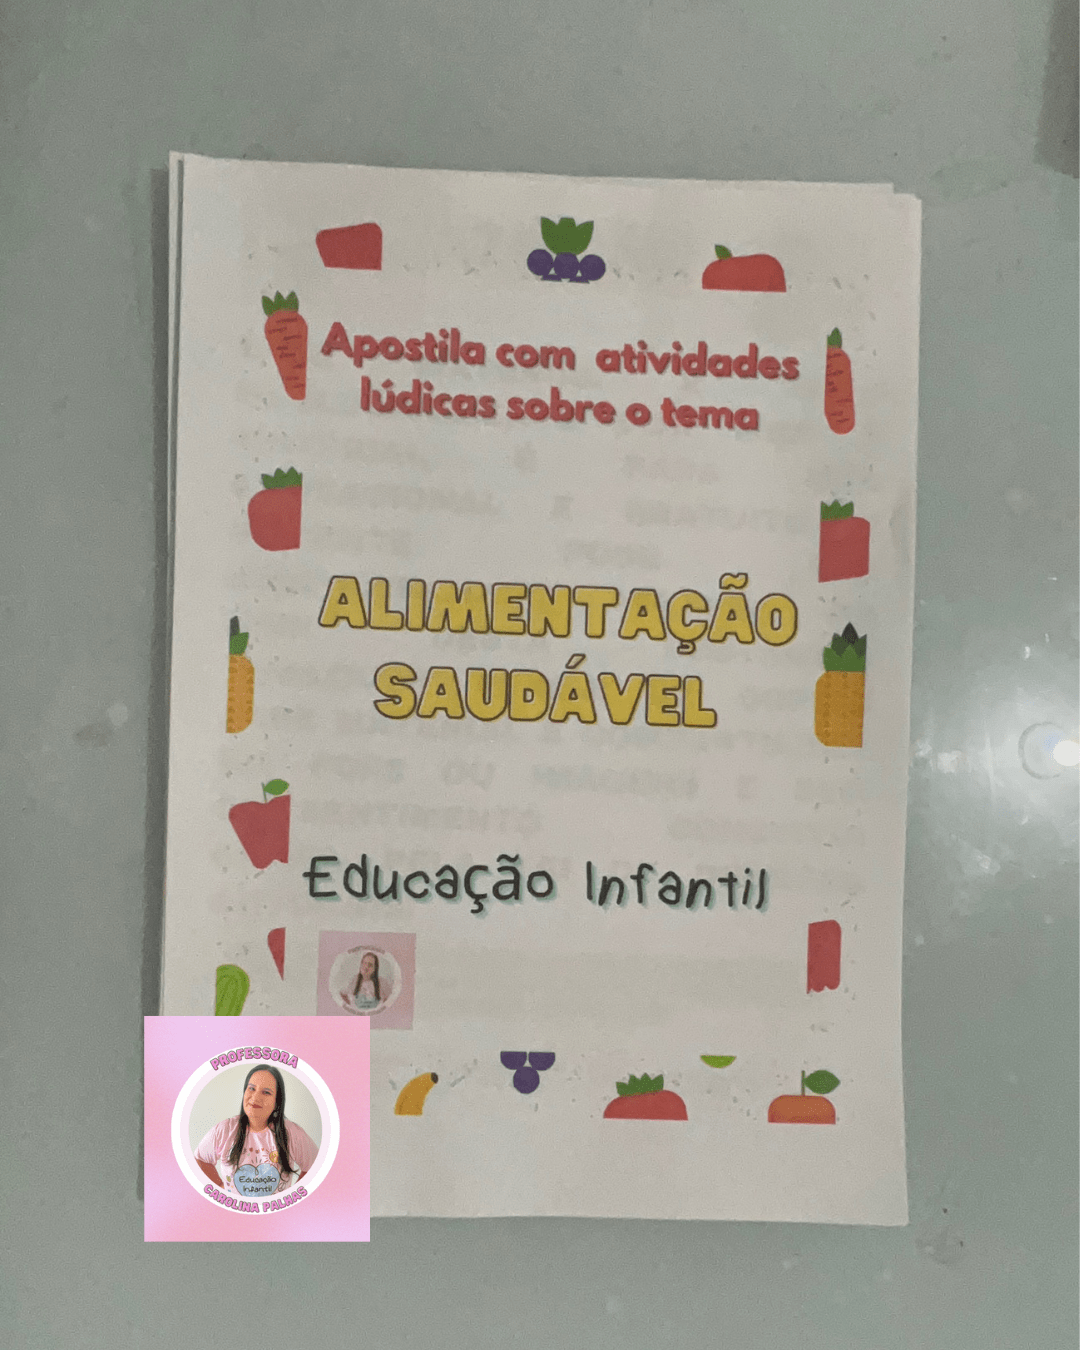 Apostila com atividades
lúdicas sobre o tema
ALIMENTAÇÃO
SAUDÁVEL
Educação Infantil
PROFESSORA
Educação
Infantil
CAROLINA PALHAS